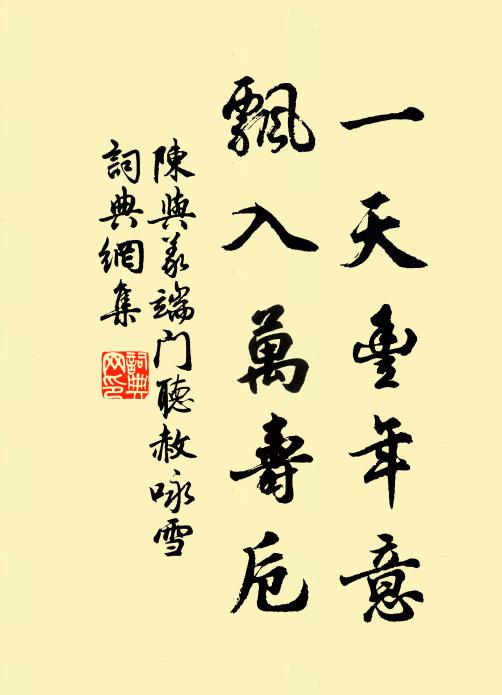 一天豐年意
飄入萬壽卮
陳與義端門聽赦咏雪
詞典網集
詞典网印